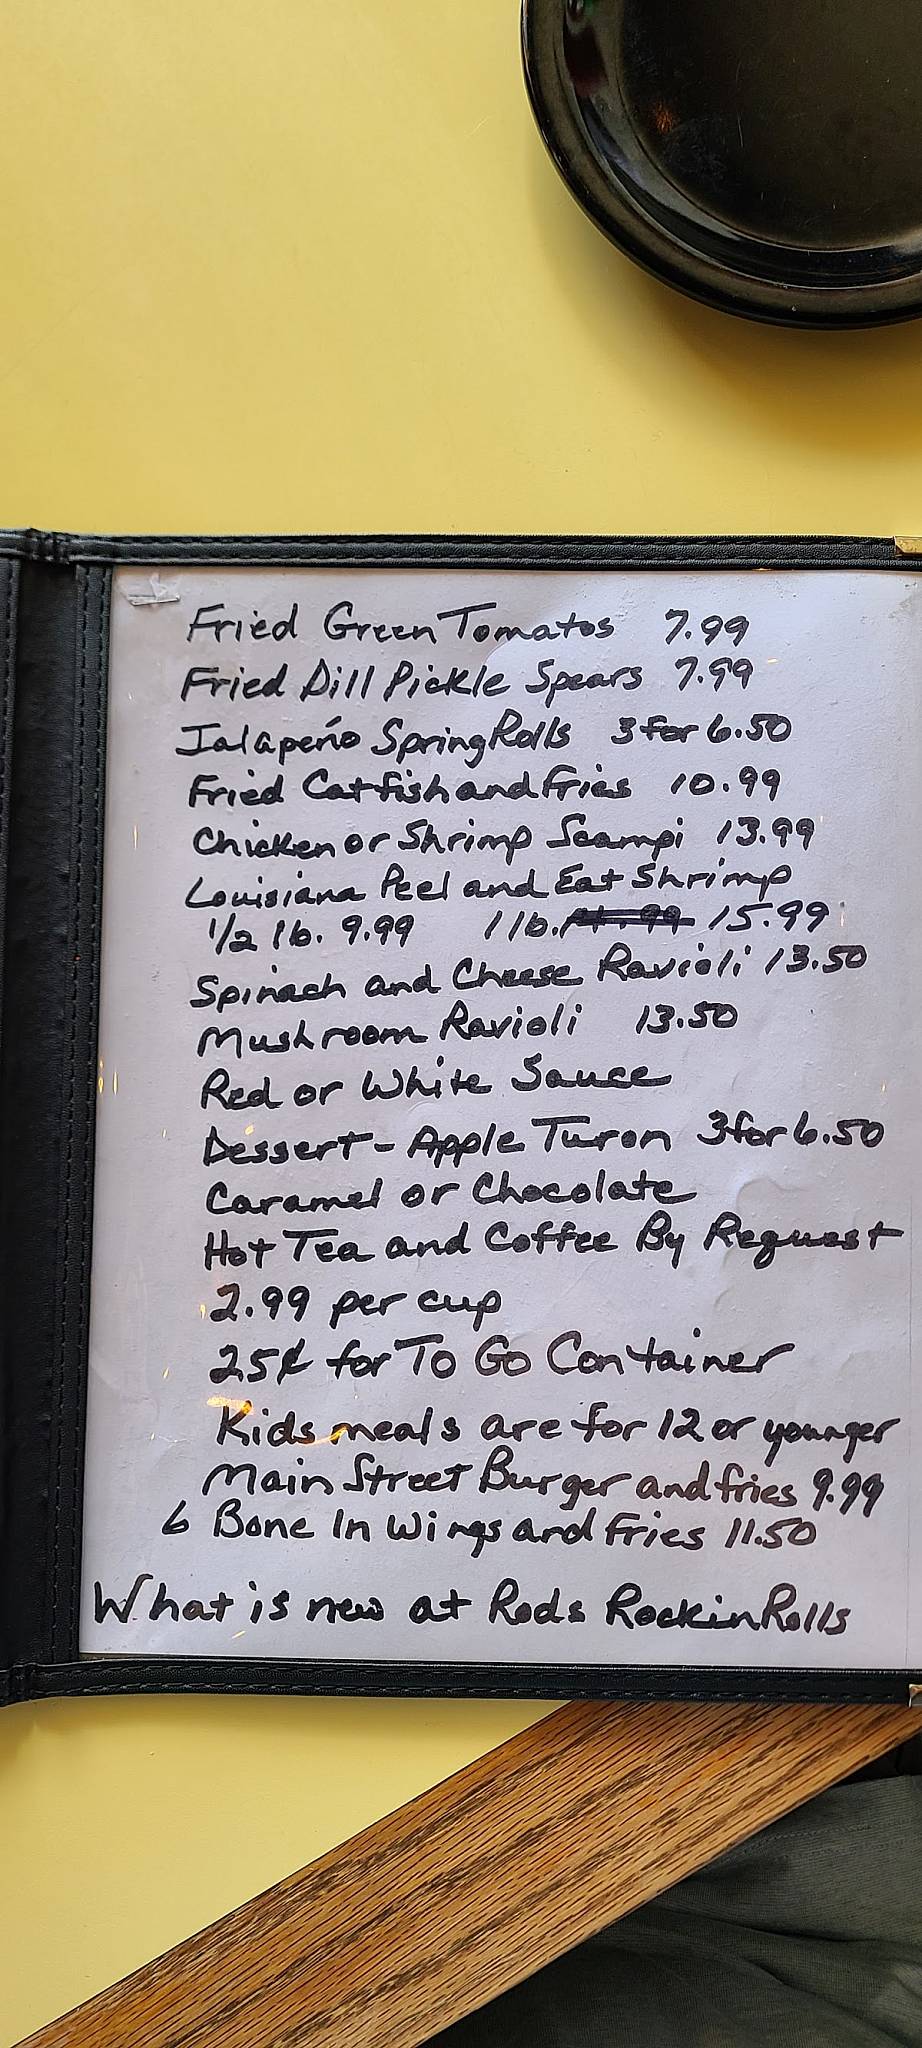 Fried Green Tomatos 7.99
Fried Dill Pickle Spears 7.99
Jalapeño Spring Rolls 3 for 6.50
Fried Catfish and Fries 10.99
Chicken or Shrimp Scampi 13.99
Louisiana Peel and Eat Shrimp
1/2 lb. 9.99 1 lb. 15.99
Spinach and Cheese Ravioli 13.50
Mushroom Ravioli 13.50
Red or White Sauce
Dessert - Apple Turon 3 for 6.50
Caramel or Chocolate
Hot Tea and Coffee By Request
2.99 per cup
25¢ for To Go Container
Kids meals are for 12 or younger
Main Street Burger and fries 9.99
6 Bone In Wings and Fries 11.50
What is new at Rods Rockin Rolls